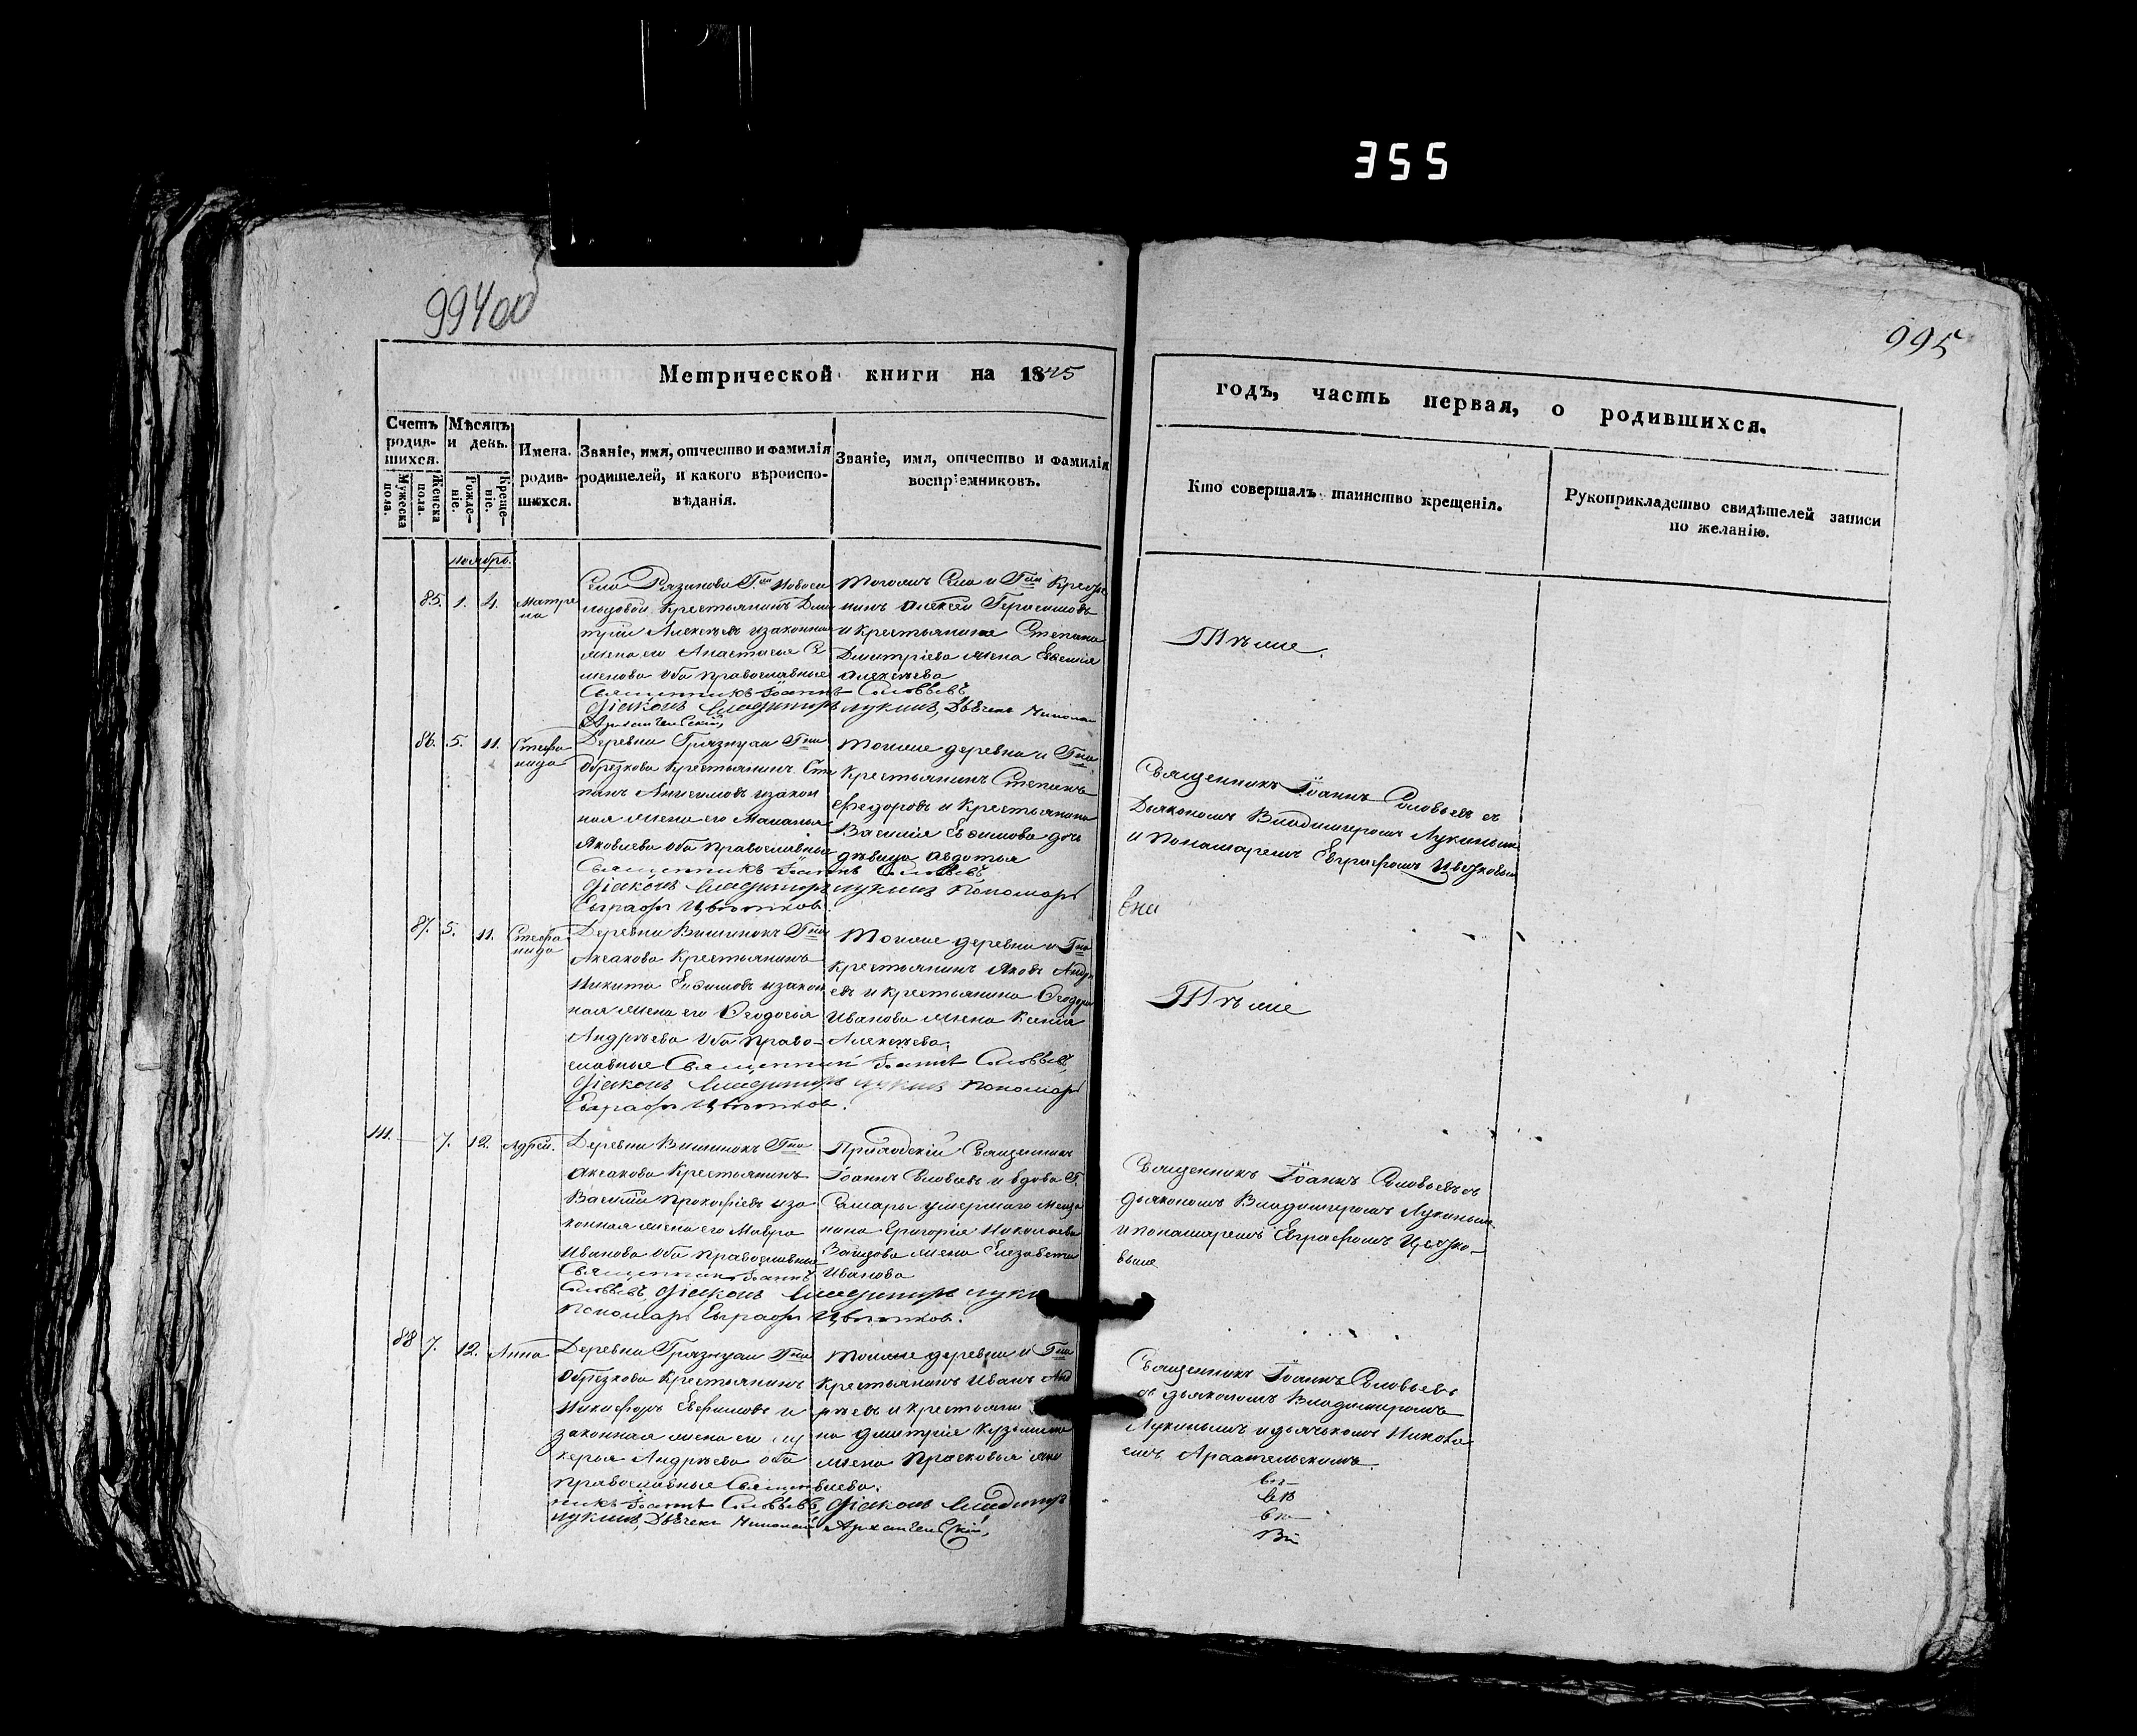 355
995
Метрической книги на 1845
годъ, часть первая, о родившихся.
Счетъ родившихся.
Мужеска пола.
Женска пола.
Мѣсяцъ и день.
Рожденіе.
Крещеніе.
Имена родившихся.
Званіе, имя, отчество и фамилія
родителей, и какого вѣроиспо-
вѣданія.
Званіе, имя, отчество и фамилія
воспріемниковъ.
Кто совершалъ таинство крещенія.
Рукоприкладство свидѣтелей записи
по желанію.
ноябрь.
85. 1. 4. Матрена
Села Рязанова
Крестьянинъ Дми
трій Алексѣевъ изаконная
жена его Анастасія Се
менова оба православные
Священникъ Іоаннъ Соловьевъ
Діаконъ Владимиръ Лукинъ, Дьячекъ Николай
Архангельскій,
Тогожъ Села и Гна Кресть
нинъ Алексѣй Герасимовъ
и крестьянина Степана
Дмитріева жена Евгенія
Алексѣева
Тѣже.
86. 5. 11. Стефанида
Деревни Грязнухи Гна
Обрезкова Крестьянинъ Сте
панъ Анисимовъ изакон
ная жена его Маланья
Яковлева оба православные
Священникъ Іоаннъ Соловьевъ
Діаконъ Владимиръ Лукинъ Пономарь
Евграфъ Цвѣтковъ
Тойже деревни и Гна
Крестьянинъ Степанъ
Федоровъ и Крестьянина
Василія Евсимова дочь
дѣвица Авдотья
Священникъ Іоаннъ Соловьевъ съ
Дьякономъ Владимиромъ Лукинымъ
и Пономаремъ Евграфомъ Цветковым
87. 5. 11. Стефанида
Деревни Вишинокъ Гна
Аксакова Крестьянинъ
Никита изакон
ная жена его Феодосія
Андрѣева оба право-
славные Священникъ Іоаннъ Соловьевъ,
Діаконъ Владимиръ Лукинъ Пономарь
Евграфъ Цвѣтковъ.
Тойже деревни и Гна
крестьянинъ Яковъ Андре
евъ и крестьянина Феодора
Иванова жена Ксенія
Алексѣева.
Тѣже
111. 7. 12. Адрей.
Деревни Вишинокъ Гна
Аксакова Крестьянинъ
Василій Прокофьевъ иза
конная жена его Мавра
Иванова оба православные
Священникъ Іоаннъ
Соловьевъ, Діаконъ Владимиръ Луки
Пономарь Евграфъ Цвѣтковъ.
Приходскій Священникъ
Іоаннъ Соловьевъ и вдова Г.
Самары умершаго Меща
нина Григорія Николаева
жена Елизавета
Иванова
Священникъ Іоаннъ Соловьевъ съ
дьякономъ Владимиромъ Лукинымъ
и пономаремъ Евграфомъ Цветко-
вымъ
88 7. 12. Анна
Деревни Грязнухи Гна
Обрезкова Крестьянинъ
Никифоръ Евфимовъ и
законная жена его Лу
керья Андрѣева оба
православные Священ
никъ Іоаннъ Соловьевъ, Діаконъ Владимиръ
Лукинъ, Дьячекъ Николай Архангельскій,
Тойже деревни и Гна
Крестьянинъ Иванъ Анд
рѣевъ и крестьяни
на Дмитрія Кузьмина
жена Прасковья Яко
влева.
Священникъ Іоаннъ Соловьевъ
съ дьякономъ Владимиромъ
Лукинымъ и дьячькомъ Никола
емъ Архангельскимъ